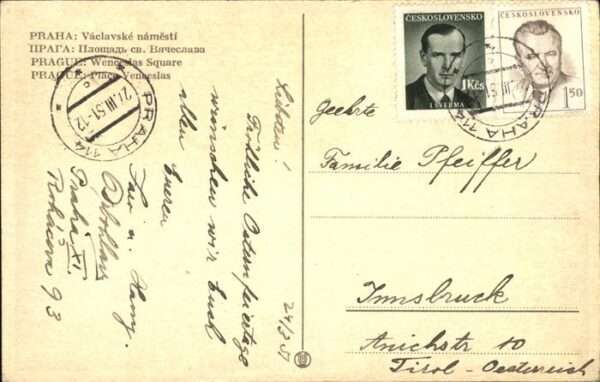 PRAHA: Václavské náměstí
ПРАГА: Площадь св. Вячеслава
PRAGUE: Wenceslas Square
PRAGUE: Place Venceslas
PRAHA 114
24.III.51-12
ČESKOSLOVENSKO
1Kčs
J. ŠVERMA
ČESKOSLOVENSKO
1.50
PRAHA 114
Geehrte
Familie Pfeiffer
Innsbruck
Anichstr 10
Tirol - Oesterreich
24/3 51
Fröhliche Osterfeiertage
wünschen wir Euch
allen Eueren
Praha XI.
Rohácova 93